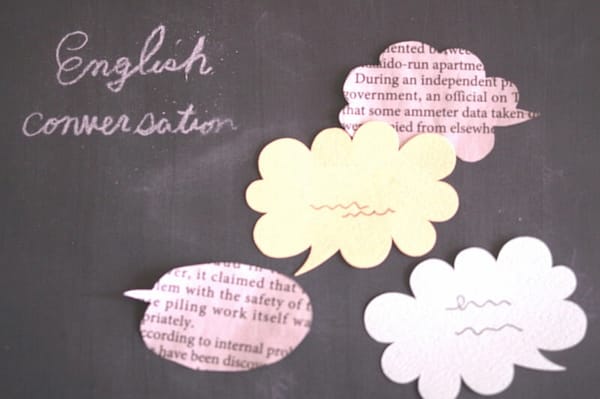 English
conversation
ented betwee
aido-run apartme
During an independent
government, an official on
that some ammeter data taken
ied from elsewhe
er, it claimed that
lem with the safety of
e piling work itself wa
priately.
ccording to internal
have been disco